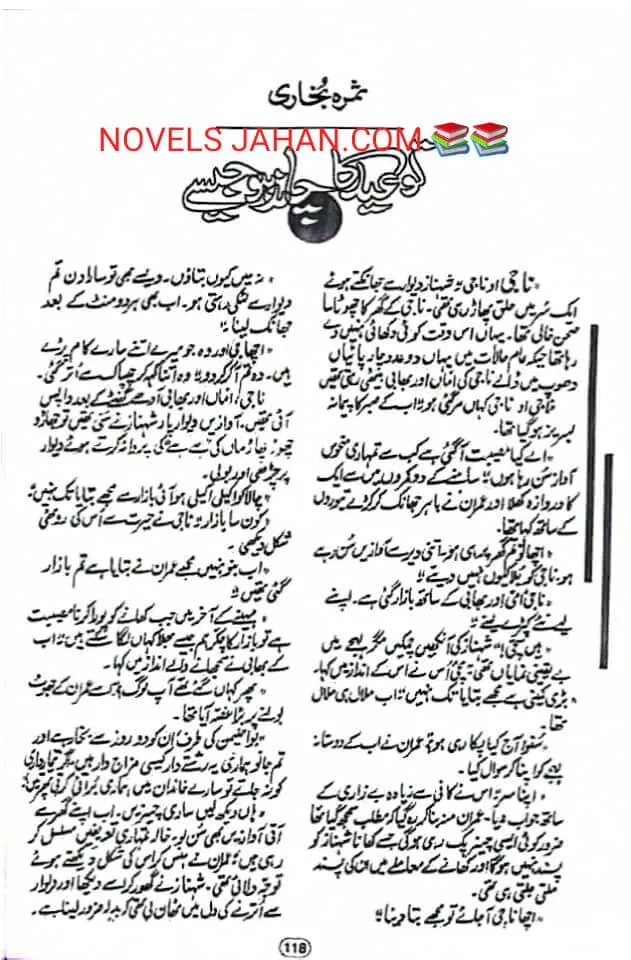 ثمرہ بُخاری
NOVELS JAHAN.COM 📚📚
تو عید کا چاند ہو جیسے
"ناجی او ناجی" شہناز دیوار سے جھانکتے ہوئے
ایک سُر میں حلق پھاڑ رہی تھی۔ ناجی کے گھر کا چھوٹا سا
صحن خالی تھا۔ یہاں اس وقت کوئی دکھائی نہیں دے
رہا تھا جبکہ عام حالات میں یہاں دو عدد چارپائیاں
دھوپ میں ڈالے ناجی کی اماں اور بھابی بیٹھی رہتی تھیں
"ناجی او ناجی کہاں مر گئی ہو" اب کے صبر کا پیمانہ
لبریز ہو گیا تھا۔
"اے کیا مصیبت آ گئی ہے کب سے تمہاری منحوس
آواز سُن رہا ہوں" سامنے کے دو کمروں میں سے ایک
کا دروازہ کھلا اور عمران نے باہر جھانک کر کڑے تیوروں
کے ساتھ کہا تھا۔
"اچھا تو تم گھر پہ ہی ہو، اتنی دیر سے آوازیں سُن رہے
ہو ناجی کو بلا کیوں نہیں دیتے"
"ناجی امی اور بھابی کے ساتھ بازار گئی ہے۔ اپنے
لیے نئے کپڑے لینے"
"ہیں سچی" شہناز کی آنکھیں چمکیں مگر لہجے میں
بے یقینی نمایاں تھی۔ اُس نے اس کے انداز میں کہا۔
"بڑی کمینی ہے مجھے بتایا تک نہیں" اب ملال ہی ملال
تھا۔
"سُنو آج کیا پکا رہی ہو" عمران نے اب کے دوستانہ
لہجے کو اپنا کر سوال کیا۔
"اپنا سر" اس نے کافی سے زیادہ بے زاری کے
ساتھ جواب دیا۔ عمران منہ بنا کر رہ گیا مطلب سمجھ گیا تھا
ضرور کوئی ایسی چیز پک رہی ہو گی جسے کھانا شہناز کو
پسند نہیں ہوگا اور کھانے کے معاملے میں ان کی پسند
ملتی جلتی ہی تھی۔
"اچھا ناجی آ جائے تو مجھے بتا دینا"
"نہ میں کیوں بتاؤں۔ ویسے بھی تو سارا دن تم
دیوار سے لٹکی رہتی ہو۔ اب بھی ہر دو منٹ کے بعد
جھانک لینا"
"اچھا جی اور وہ جو میرے اتنے سارے کام پڑے
ہیں۔ وہ تم آ کر کر دو" وہ اتنا کہہ کر چھپاک سے اُتر گئی۔
ناجی، اماں اور بھابی آدھے گھنٹے کے بعد واپس
آئی تھیں۔ آوازیں دیوار پار شہناز نے سنی تھیں تو جھاڑو
چھوڑ چھاڑ ماں کی پروا نہ کرتے ہوئے دیوار
پر چڑھی اور بولی۔
"چالاکو اکیلی اکیلی ہو آئی بازار سے مجھے بتایا تک نہیں"
"کون سا بازار" ناجی نے حیرت سے اُس کی روٹھی
شکل دیکھی۔
"اب بنو نہیں مجھے عمران نے بتایا ہے تم بازار
گئی تھیں"
"مہینے کے آخر میں جب کھانے کو پورا کرنا مصیبت
ہے تو بازار کا چکر ہم جیسے بھلا کہاں لگا سکتے ہیں" اب
کے بھابی نے سمجھانے والے انداز میں کہا۔
"پھر کہاں گئے تھے آپ لوگ" اسے عمران کے جھوٹ
بولنے پر بڑا غصہ آیا تھا۔
"بوا شیمن کی طرف، اُن کو دو روز سے بخار ہے اور
تم جانو ہماری یہ رشتے دار کیسی مزاج دار ہیں، تیمارداری
کو نہ جاتے تو سارے خاندان میں ہماری بُرائی کرتی پھرتیں"
"ہاں دیکھ لیں ساری چیزیں۔ اب اپنے گھر سے
آتی آوازیں بھی سُن لو۔ خالہ تمہاری تعریفیں مسلسل کر
رہی ہیں" عمران نے ہنس کر اس کی شکل دیکھتے ہوئے
توجہ دلائی تھی۔ شہناز نے گھور کر اسے دیکھا اور دیوار
سے اُترنے کی دل میں ٹھان لی تھی کہ بدلہ ضرور لینا ہے۔
118